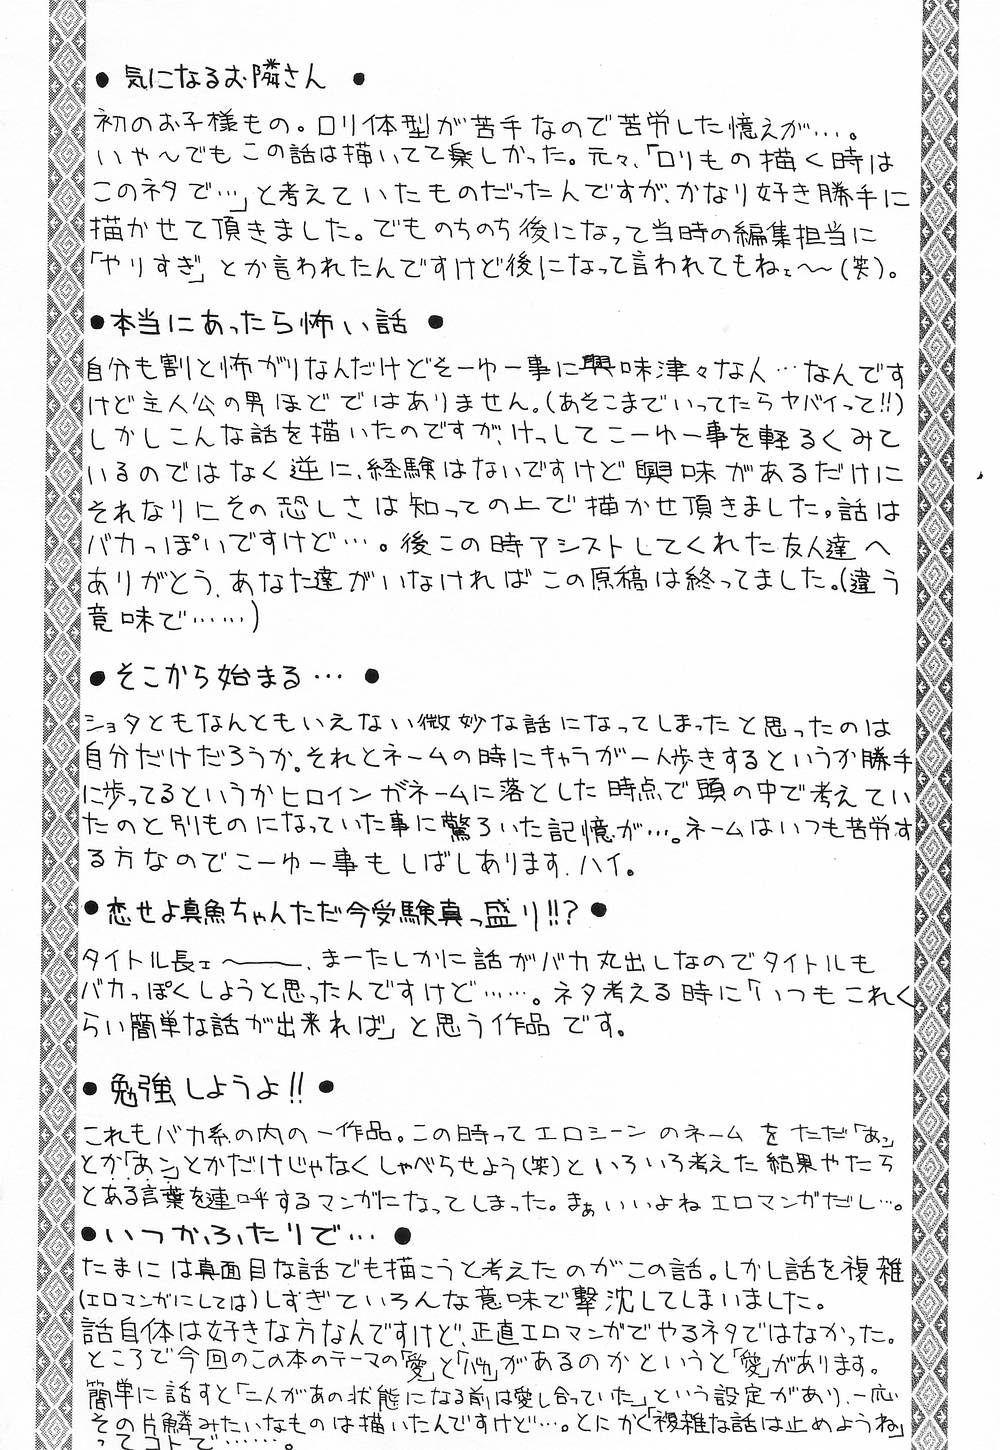 ● 気になるお隣さん ●
初のお子様もの。ロリ体型が苦手なので苦労した憶えが…。
いや～でもこの話は描いてて楽しかった。元々、「ロリもの描く時は
このネタで…」と考えていたものだったんですが、かなり好き勝手に
描かせて頂きました。でものちのち後になって当時の編集担当に
「やりすぎ」とか言われたんですけど後になって言われてもねェ～(笑)。
●本当にあったら怖い話 ●
自分も割と怖がりなんだけどそーゆー事に興味津々な人…なんです
けど主人公の男ほどではありません。(あそこまでいってたらヤバイって!!)
しかしこんな話を描いたのですが、けっしてこーゆー事を軽るくみて
いるのではなく逆に、経験はないですけど興味があるだけに
それなりにその恐しさは知っての上で描かせ頂きました。話は
バカっぽいですけど…。後この時アシストしてくれた友人達へ
ありがとう、あなた達がいなければこの原稿は終ってました。(違う
意味で……)
●そこから始まる… ●
ショタともなんともいえない微妙な話になってしまったと思ったのは
自分だけだろうか。それとネームの時にキャラが一人歩きするというか勝手
に歩ってるというかヒロインがネームに落とした時点で頭の中で考えてい
たのと別ものになっていた事に驚ろいた記憶が…。ネームはいつも苦労す
る方なのでこーゆー事もしばしあります、ハイ。
●恋せよ真魚ちゃんただ今受験真っ盛り!!? ●
タイトル長ェ～――、まーたしかに話がバカ丸出しなのでタイトルも
バカっぽくしようと思ったんですけど……。ネタ考える時に「いつもこれく
らい簡単な話が出来れば」と思う作品です。
●勉強しようよ!! ●
これもバカ系の内の一作品。この時ってエロシーンのネームをただ「あン」
とか「あン」とかだけじゃなくしゃべらせよう(笑)といろいろ考えた結果やたら
とある言葉を連呼するマンガになってしまった。まぁいいよねエロマンガだし…。
●いつかふたりで… ●
たまには真面目な話でも描こうと考えたのがこの話。しかし話を複雑
(エロマンガにしては)しすぎていろんな意味で撃沈してしまいました。
話自体は好きな方なんですけど、正直エロマンガでやるネタではなかった。
ところで今回のこの本のテーマの「愛」と「バカ」があるのかというと「愛」があります。
簡単に話すと「二人があの状態になる前は愛し合っていた」という設定があり、一応
その片鱗みたいなものは描いたんですけど…。とにかく「複雑な話は止めようね」
ってコトで……。